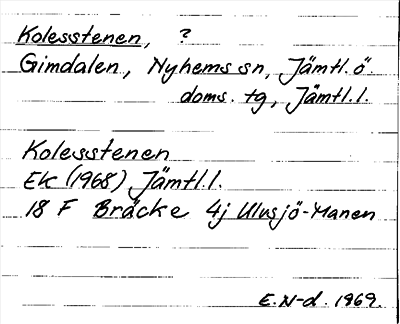 Kolesstenen, ?
Gimdalen, Nyhems sn, Jämtl. ö.
doms. tg, Jämtl.l.
Kolesstenen
EK (1968) Jämtl.l.
18 F Bräcke 4j Ulvsjö-Manen
E.N-d. 1969.